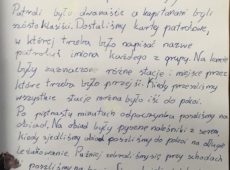 Patroli było dwanaście a kapitanami byli
szóstoklasiści. Dostaliśmy karty patrolowe,
w której trzeba było napisać nazwę
patrolu i imiona każdego z grupy. Na karcie
były zaznaczone różne stacje i miejsce przez
które trzeba było przejść. Kiedy przeszliśmy
wszystkie stacje można było iść do pokoi.
Po piętnastu minutach odpoczynku poszliśmy na
obiad. Na obiad były pyszne naleśniki z serem.
Kiedy zjedliśmy obiad poszliśmy do pokoi na długie
leżakowanie. Później zebraliśmy się przy schodach
poszliśmy na